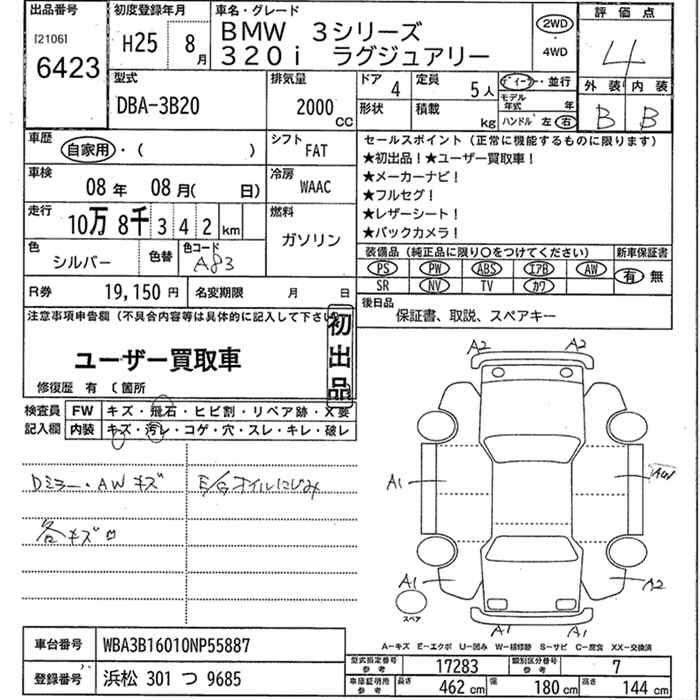 出品番号
[2106]
6423
初度登録年月
H25 8月
車名・グレード
BMW 3シリーズ
320i ラグジュアリー
2WD
4WD
評価点
4
外装 内装
B B
型式
DBA-3B20
排気量
2000 CC
ドア 4
形状
定員 5人
積載 kg
ディーラー・並行
モデル年式 年
ハンドル 左 右
車歴
自家用・( )
シフト FAT
車検
08年 08月( 日)
冷房 WAAC
走行
10万 8千 3 4 2 km
燃料
ガソリン
色
シルバー
色替
色コード
A83
R券 19,150円
名変期限 月 日
セールスポイント(正常に機能するものに限ります)
★初出品!★ユーザー買取車!
★メーカーナビ!
★フルセグ!
★レザーシート!
★バックカメラ!
装備品(純正品に限り○をつけてください)
新車保証書
PS PW ABS エアB AW
SR NV TV カワ
有 無
後日品
保証書、取説、スペアキー
注意事項申告欄(不具合内容等は具体的に記入して下さい)
ユーザー買取車
初出品
修復歴 有 (箇所
検査員記入欄
FW キズ・飛石・ヒビ割・リペア跡・X要
内装 キズ・汚レ・コゲ・穴・スレ・キレ・破レ
Dミラー・AWキズ
E/Gオイルにじみ
各キズ
A2 A2
A1
A1
A2
A1 A1
スペア
A-キズ E-エクボ U-凹み W-補修跡 S-サビ C-腐食 XX-交換済
車台番号 WBA3B16010NP55887
登録番号 浜松 301 つ 9685
型式指定番号 参考 17283
類別区分番号 参考 7
車庫証明用 参考
長さ 462 cm
幅 180 cm
高さ 144 cm